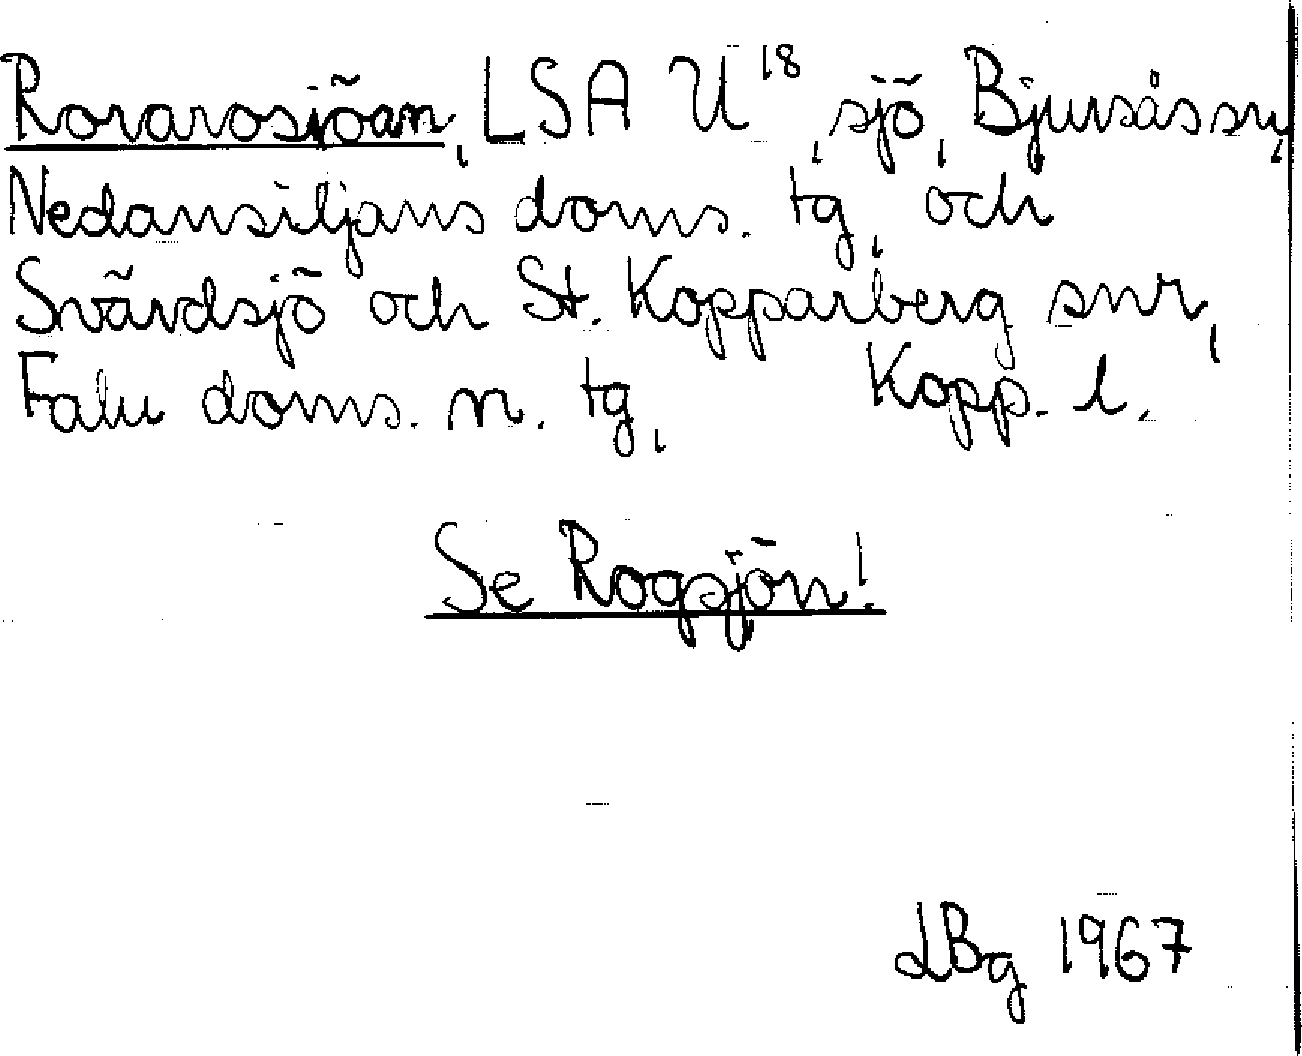 Rorarosjöan, LSA U18, sjö, Bjursås sn,
Nedansiljans doms. tg, och
Svärdsjö och St. Kopparberg snr,
Falu doms. n. tg, Kopp. l.
Se Rogsjön!
LBg 1967